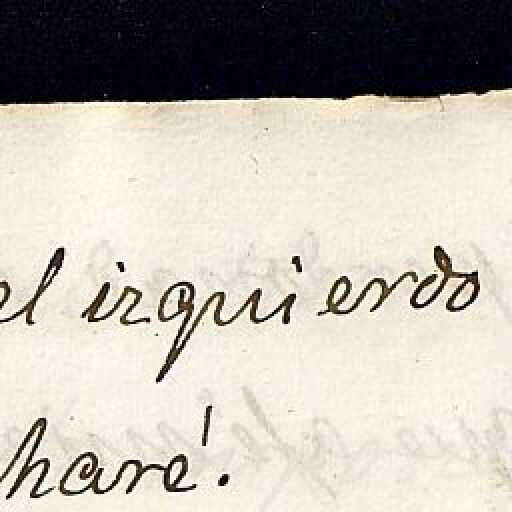 el izquierdo
haré.